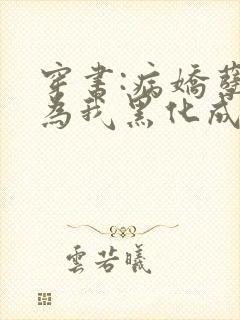 穿書:病嬌
為我黑化成
雲若曦